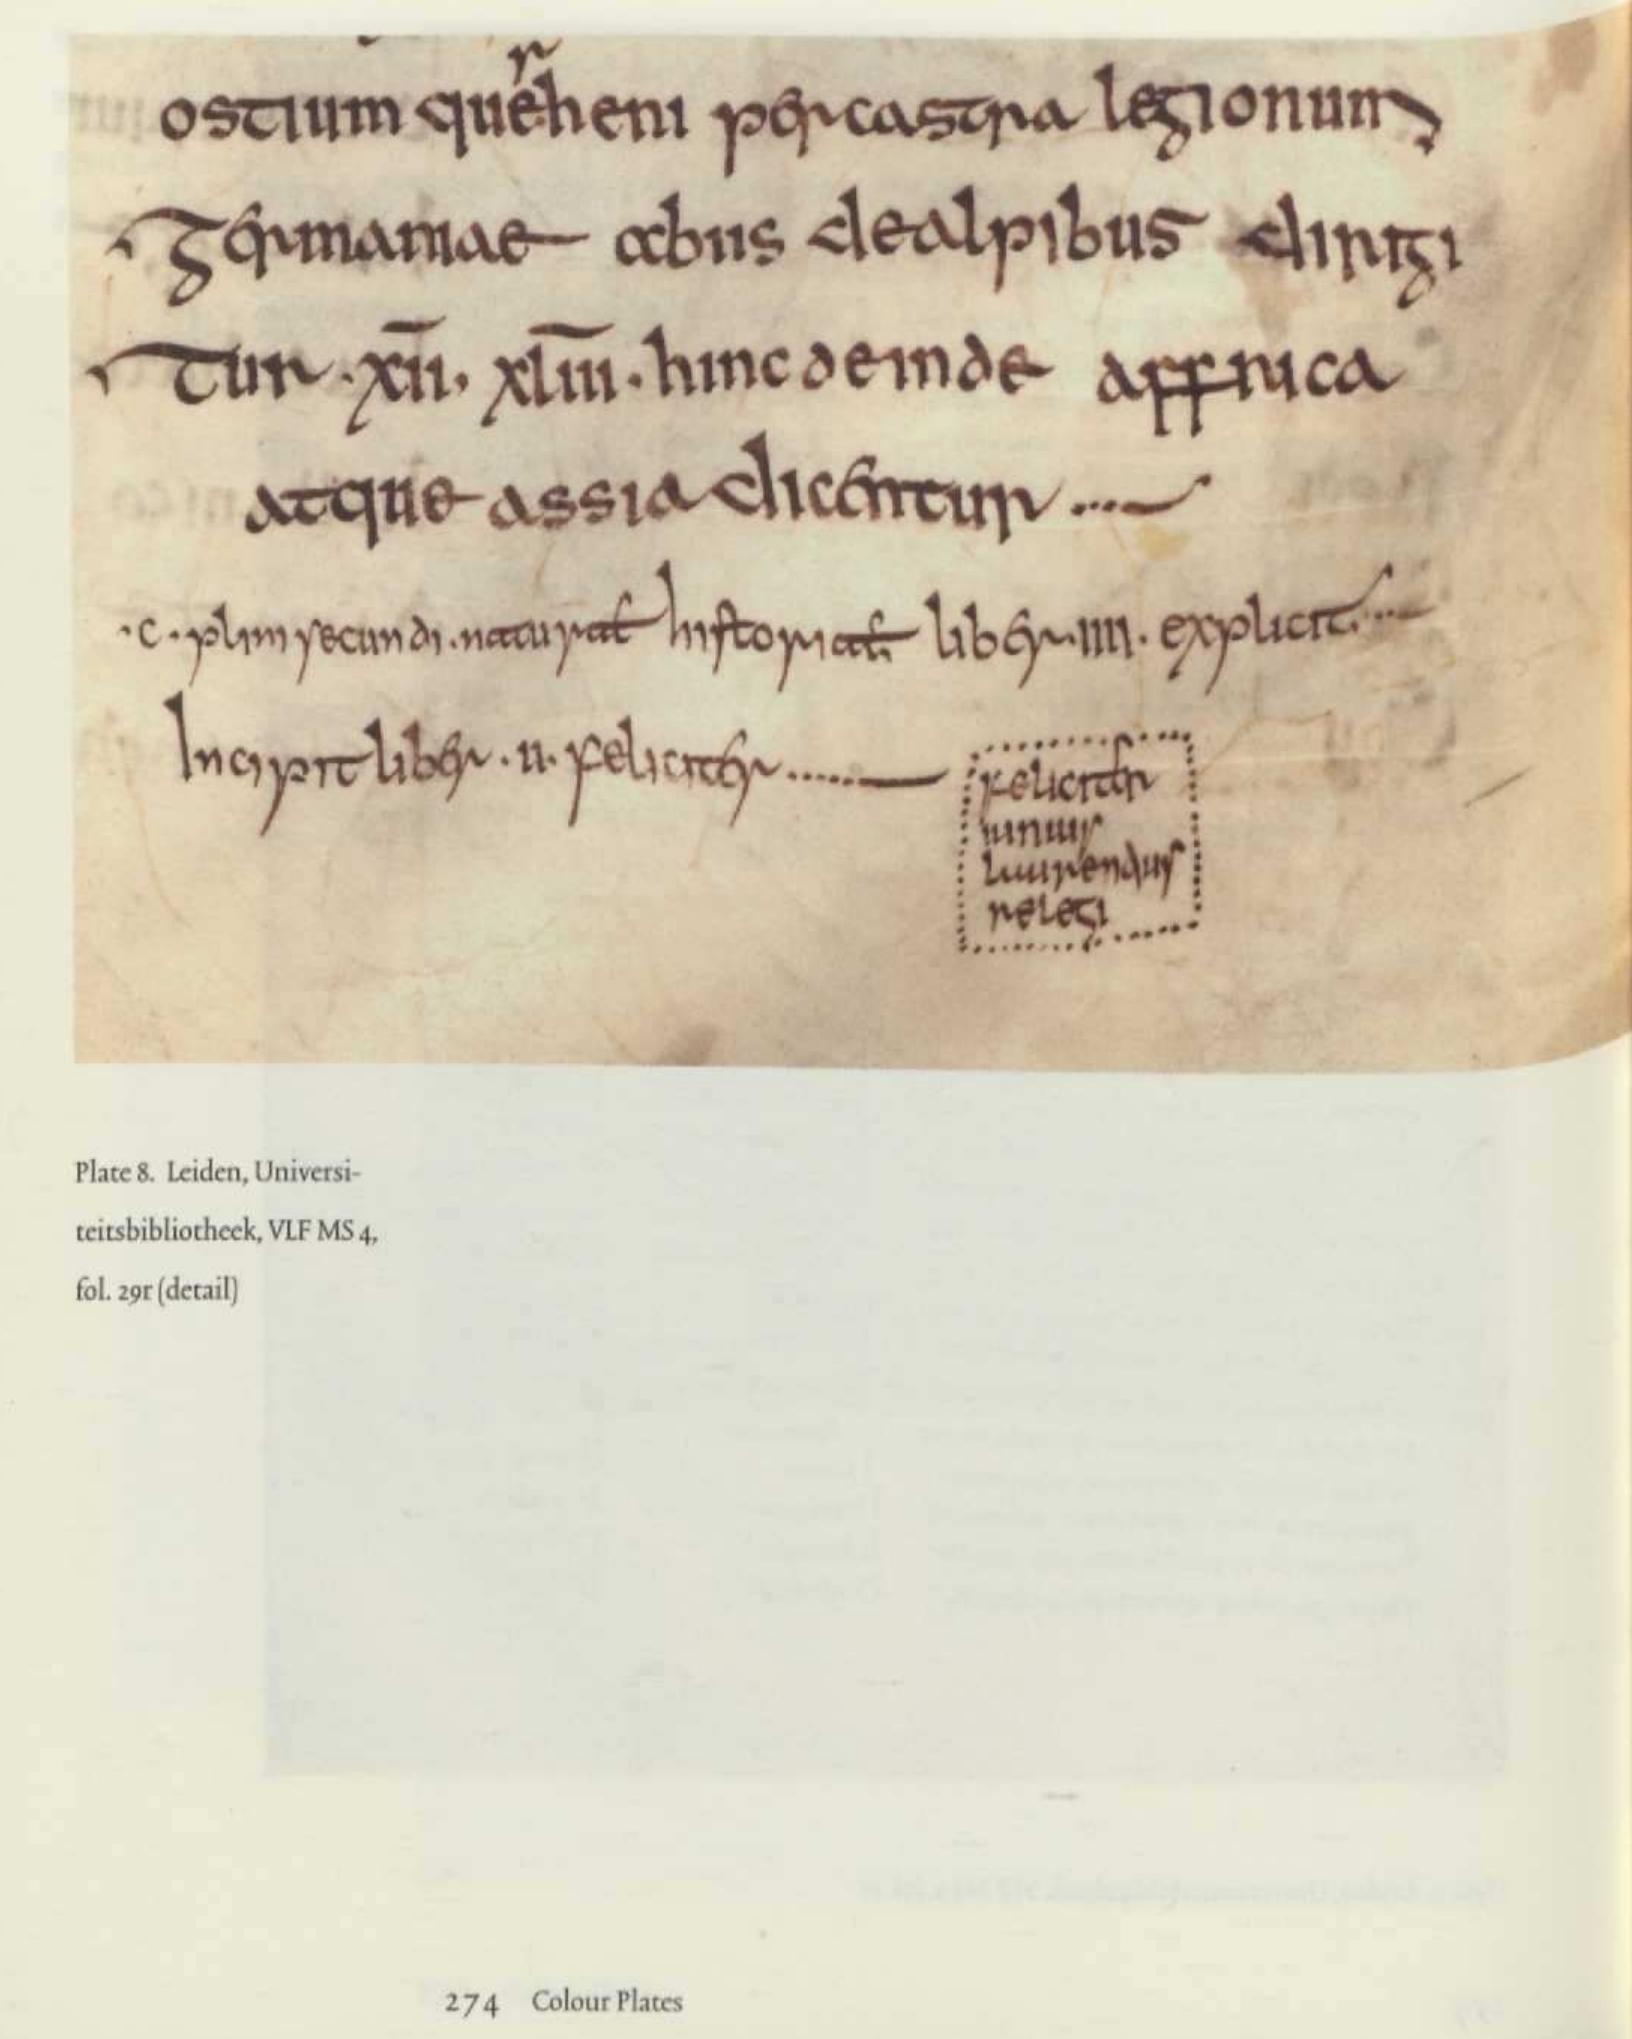 ostium que͛heni per castra legionum
germaniae abus dealpibus dirigi
tur · x̅i̅i̅ · x̅l̅i̅i̅i̅ · hinc deinde affrica
atque assia dicentur ...
· c · plini secundi · naturał historiał liber · iiii · explicit ...
Incipit liber · u · feliciter ......
feliciter
iunius
laurendus
relegi
Plate 8. Leiden, Universi-
teitsbibliotheek, VLF MS 4,
fol. 29r (detail)
274 Colour Plates